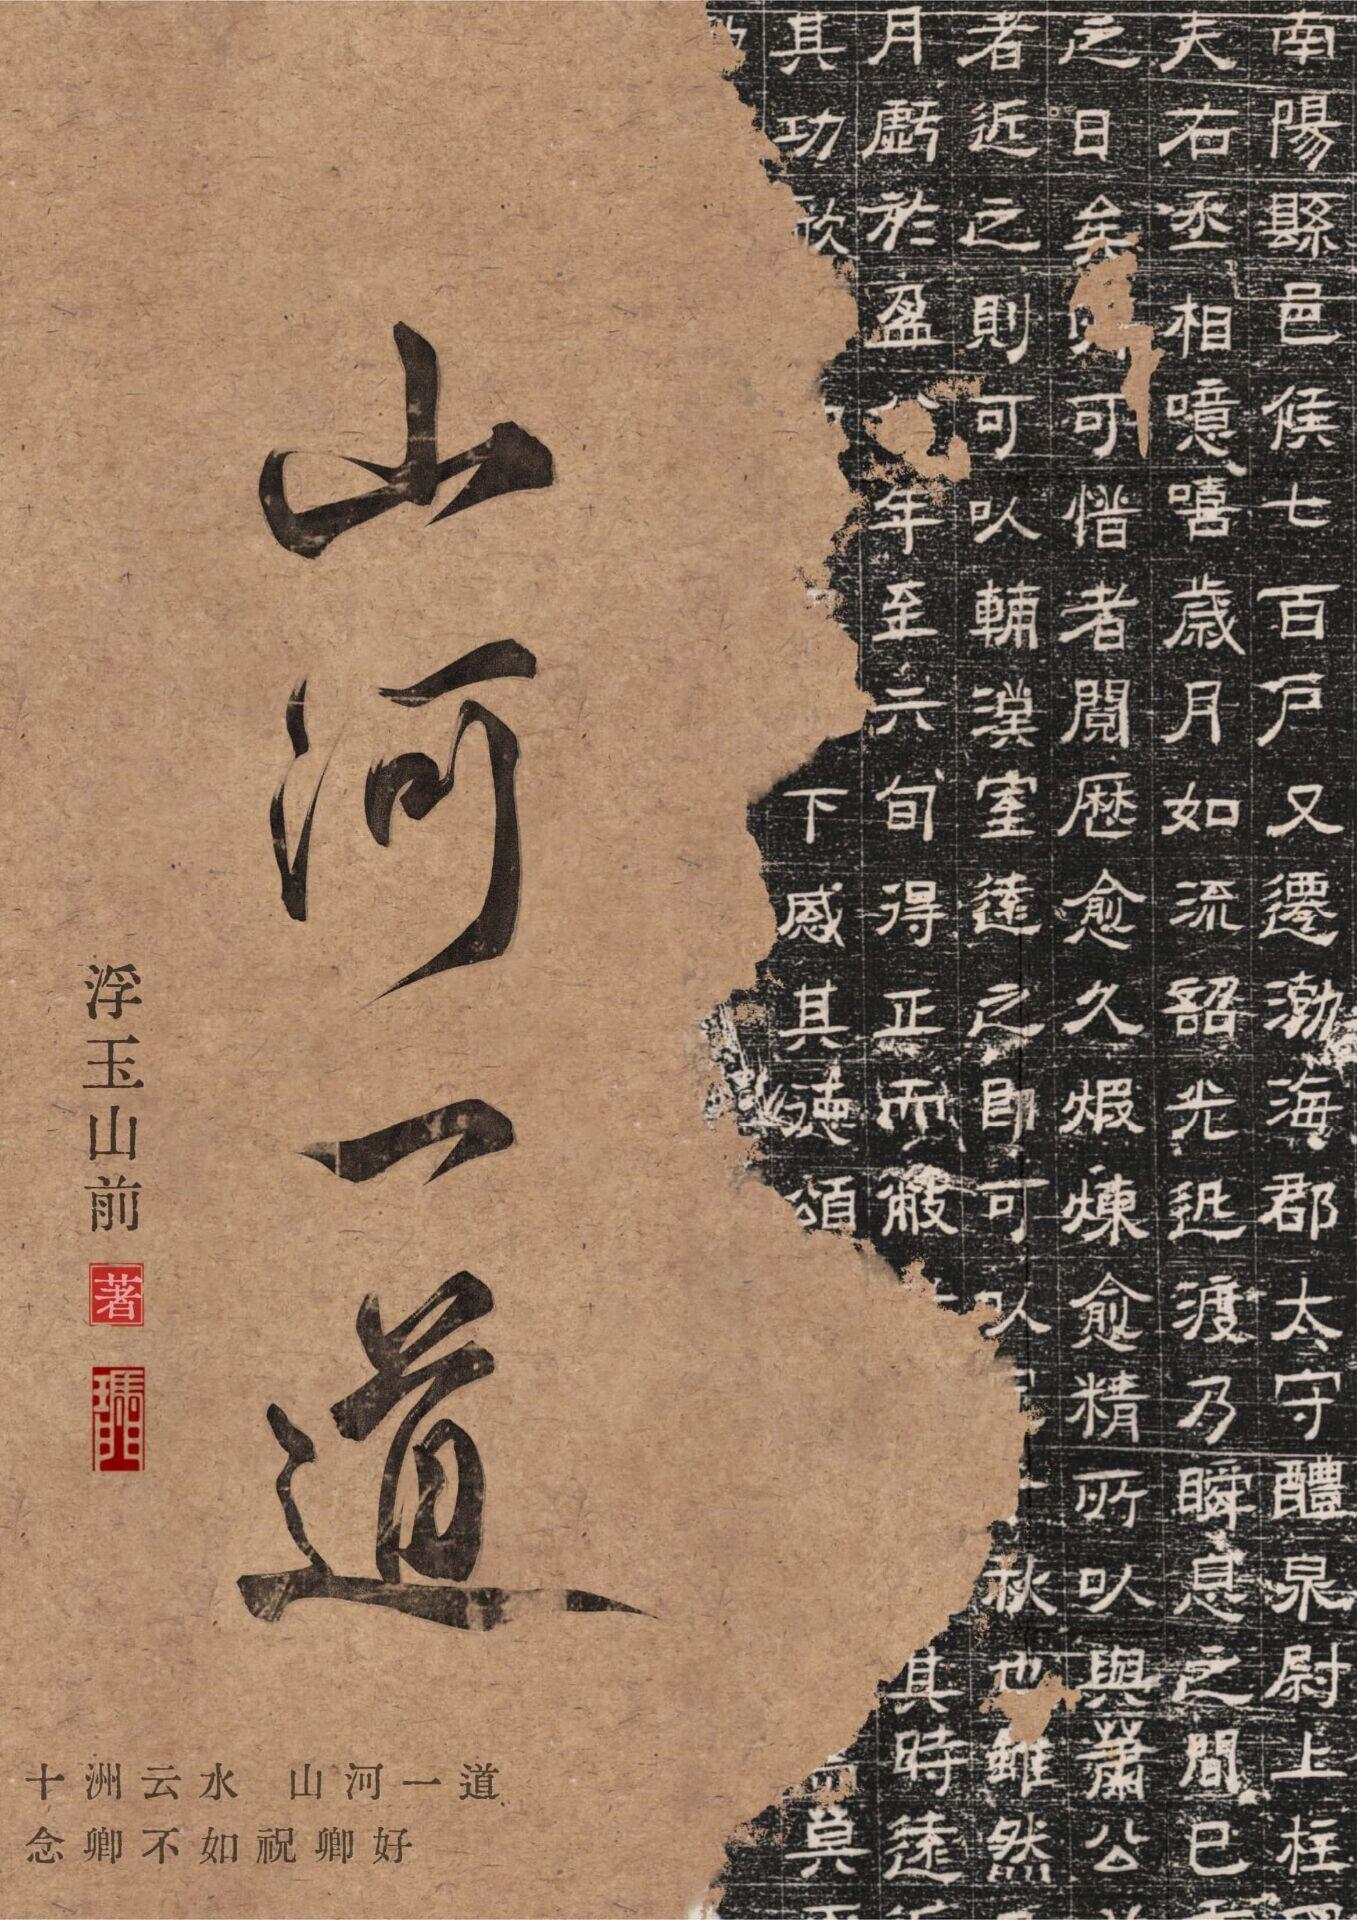 山河一道
浮玉山前
著
十洲云水 山河一道
念卿不如祝卿好
南陽縣邑候七百戸又遷渤海郡太守醴泉尉上柱
夫右丞相噫嘻歲月如流韶光迅渡乃瞬息之間已
之日矣可惜者閱歴愈久煆煉愈精所以與蕭公
者近之則可以輔漢室遠之即可以秋也雖然
月虧於盈年至六旬得正而敝其時遠
其功下感其德頌莫